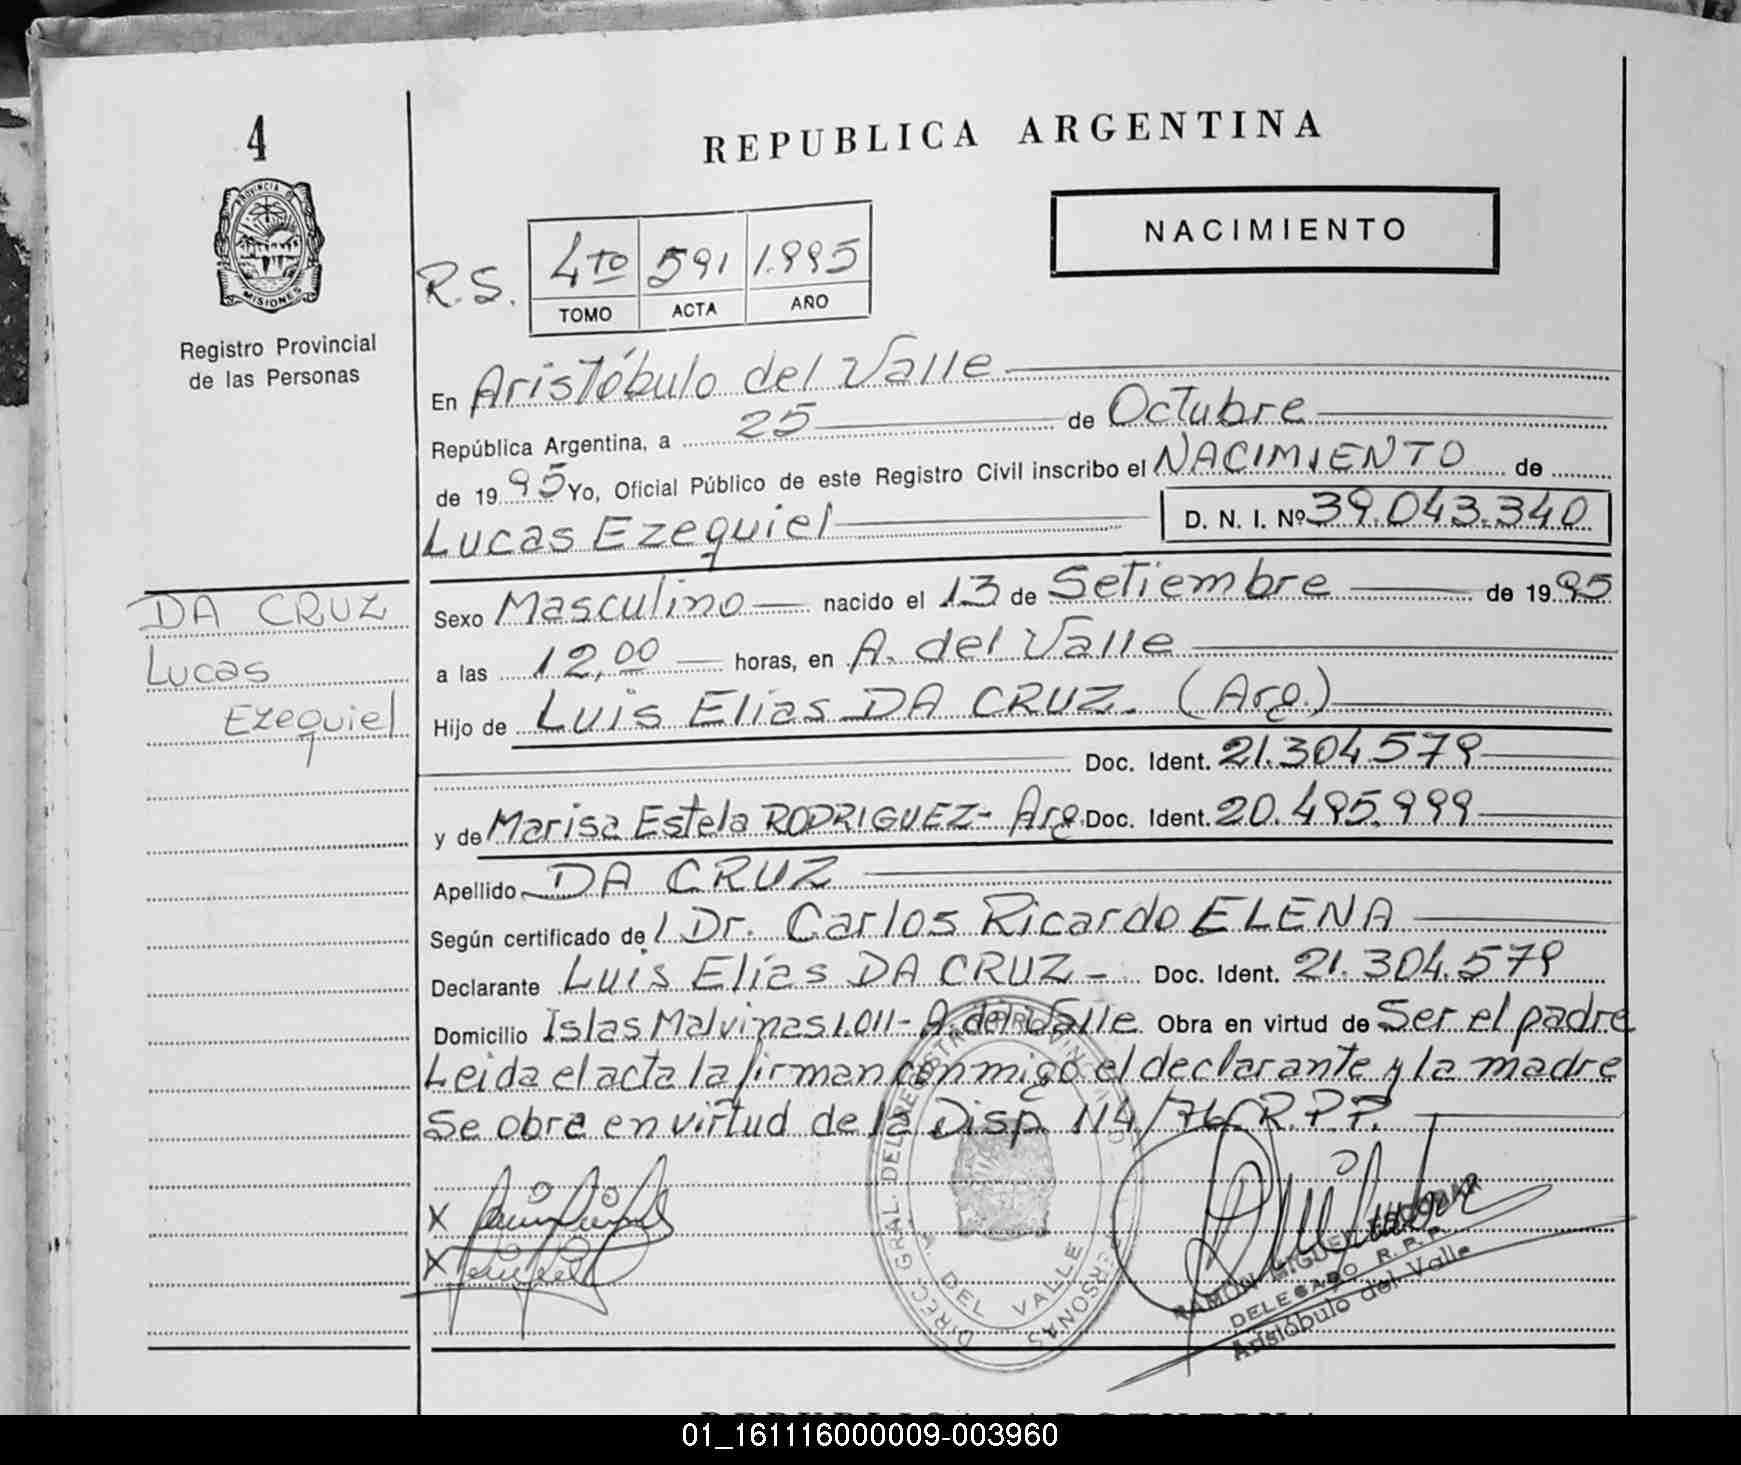 4
PROVINCIA DE
MISIONES
Registro Provincial
de las Personas
REPUBLICA ARGENTINA
NACIMIENTO
R.S. 4to 591 1.995
TOMO ACTA AÑO
En Aristóbulo del Valle
República Argentina, a 25 de Octubre
de 1995 Yo, Oficial Público de este Registro Civil inscribo el NACIMIENTO de
Lucas Ezequiel D. N. I. Nº 39.043.340
DA CRUZ
Lucas
Ezequiel
Sexo Masculino nacido el 13 de Setiembre de 1995
a las 12,00 horas, en A. del Valle
Hijo de Luis Elias DA CRUZ. (Arg.)
Doc. Ident. 21.304.579
y de Marisa Estela RODRIGUEZ- Arg. Doc. Ident. 20.495.999
Apellido DA CRUZ
Según certificado de / Dr. Carlos Ricardo ELENA
Declarante Luis Elías DA CRUZ - Doc. Ident. 21.304.579
Domicilio Islas Malvinas 1.011 - A. del Valle Obra en virtud de Ser el padre
Leida el acta la firman conmigo el declarante y la madre
Se obra en virtud de la Disp. 114/76 R.P.P.
X
X
DIREC. GRAL. DEL REGISTRO PROVINCIAL PERSONAS
A. DEL VALLE
RAMON MIGUEL
DELEGADO R. P. P.
Aristóbulo del Valle
REPUBLICA ARGENTINA
01_161116000009-003960